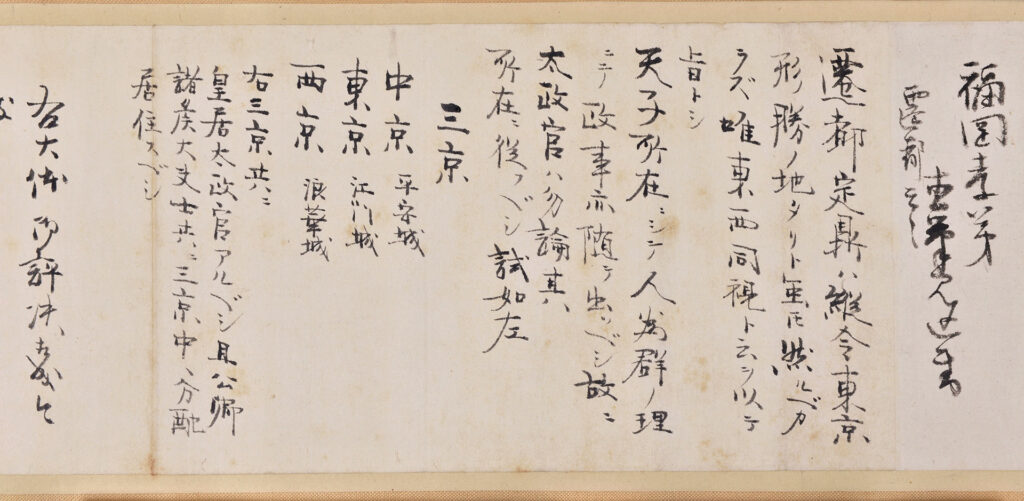 福岡孝弟
遷都意見書
遷都定鼎ハ縦令東京
形勝ノ地タリト雖モ然ルベカ
ラズ唯東西同視ト云ヲ以テ
旨トシ
天子所在ニシテ人為群ノ理
ニテ政事亦随テ出ツベシ故ニ
太政官ハ勿論其
所在ニ従フベシ試如左
三京
中京 平安城
東京 江戸城
西京 浪華城
右三京共ニ
皇居太政官アルベシ且公卿
諸矦大夫士共ニ三京中ヘ分配
居住スベシ
右大体御評決